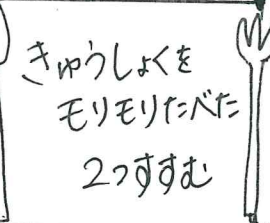 きゅうしょくを
モリモリたべた
2つすすむ